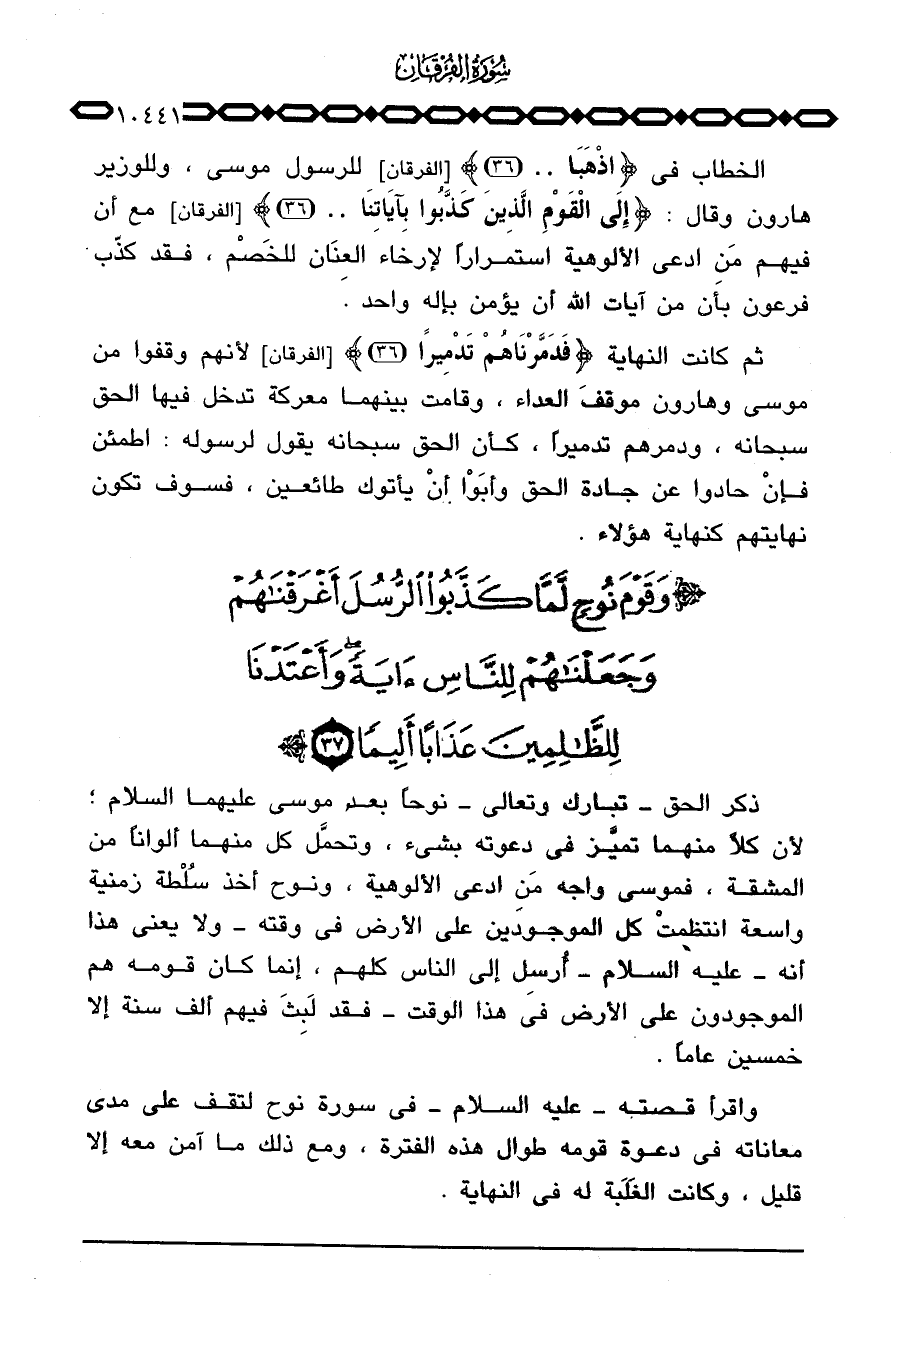 سُورَةُ الفُرْقَانِ
١٠٤٤١
الخطاب فى ﴿اذْهَبَا .. (٣٦)﴾ [الفرقان] للرسول موسى ، وللوزير
هارون وقال : ﴿إِلَى الْقَوْمِ الَّذِينَ كَذَّبُوا بِآيَاتِنَا .. (٣٦)﴾ [الفرقان] مع أن
فيهم مَن ادعى الألوهية استمراراً لإرخاء العِنَان للخَصْم ، فقد كذَّب
فرعون بأن من آيات الله أن يؤمن بإله واحد .
ثم كانت النهاية ﴿فَدَمَّرْنَاهُمْ تَدْمِيرًا (٣٦)﴾ [الفرقان] لأنهم وقفوا من
موسى وهارون موقفَ العداء ، وقامت بينهما معركة تدخل فيها الحق
سبحانه ، ودمرهم تدميراً ، كأن الحق سبحانه يقول لرسوله : اطمئن
فإنْ حادوا عن جادة الحق وأبَوْا أنْ يأتوك طائعين ، فسوف تكون
نهايتهم كنهاية هؤلاء .
﴿وَقَوْمَ نُوحٍ لَّمَّا كَذَّبُوا۟ ٱلرُّسُلَ أَغْرَقْنَٰهُمْ
وَجَعَلْنَٰهُمْ لِلنَّاسِ ءَايَةًۖ وَأَعْتَدْنَا
لِلظَّٰلِمِينَ عَذَابًا أَلِيمًا ٣٧﴾
ذكر الحق - تبارك وتعالى - نوحاً بعد موسى عليهما السلام ؛
لأن كلاً منهما تميَّز فى دعوته بشىء ، وتحمَّل كل منهما ألواناً من
المشقة ، فموسى واجه مَن ادعى الألوهية ، ونوح أخذ سُلْطة زمنية
واسعة انتظمتْ كل الموجودين على الأرض فى وقته - ولا يعنى هذا
أنه - عليه السلام - أُرسل إلى الناس كلهم ، إنما كان قومه هم
الموجودون على الأرض فى هذا الوقت - فقد لَبِثَ فيهم ألف سنة إلا
خمسين عاماً .
واقرأ قصته - عليه السلام - فى سورة نوح لتقف على مدى
معاناته فى دعوة قومه طوال هذه الفترة ، ومع ذلك ما آمن معه إلا
قليل ، وكانت الغَلَبة له فى النهاية .